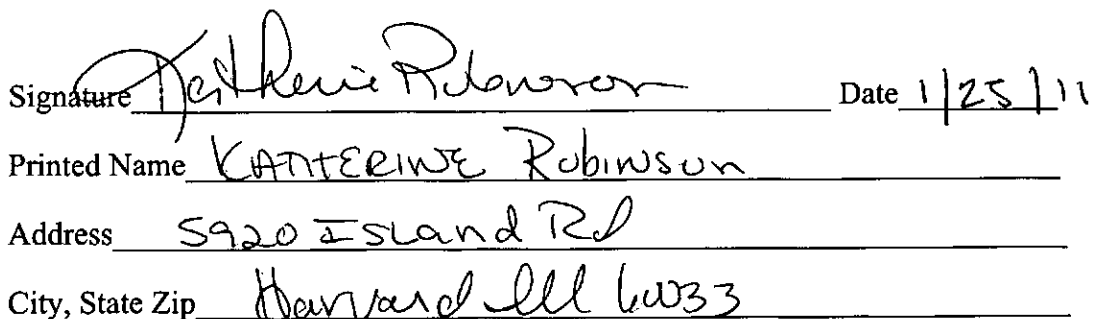 Signature Katherine Robinson Date 1/25/11
Printed Name KATHERINE Robinson
Address 5920 Island Rd
City, State Zip Harvard Ill 60033